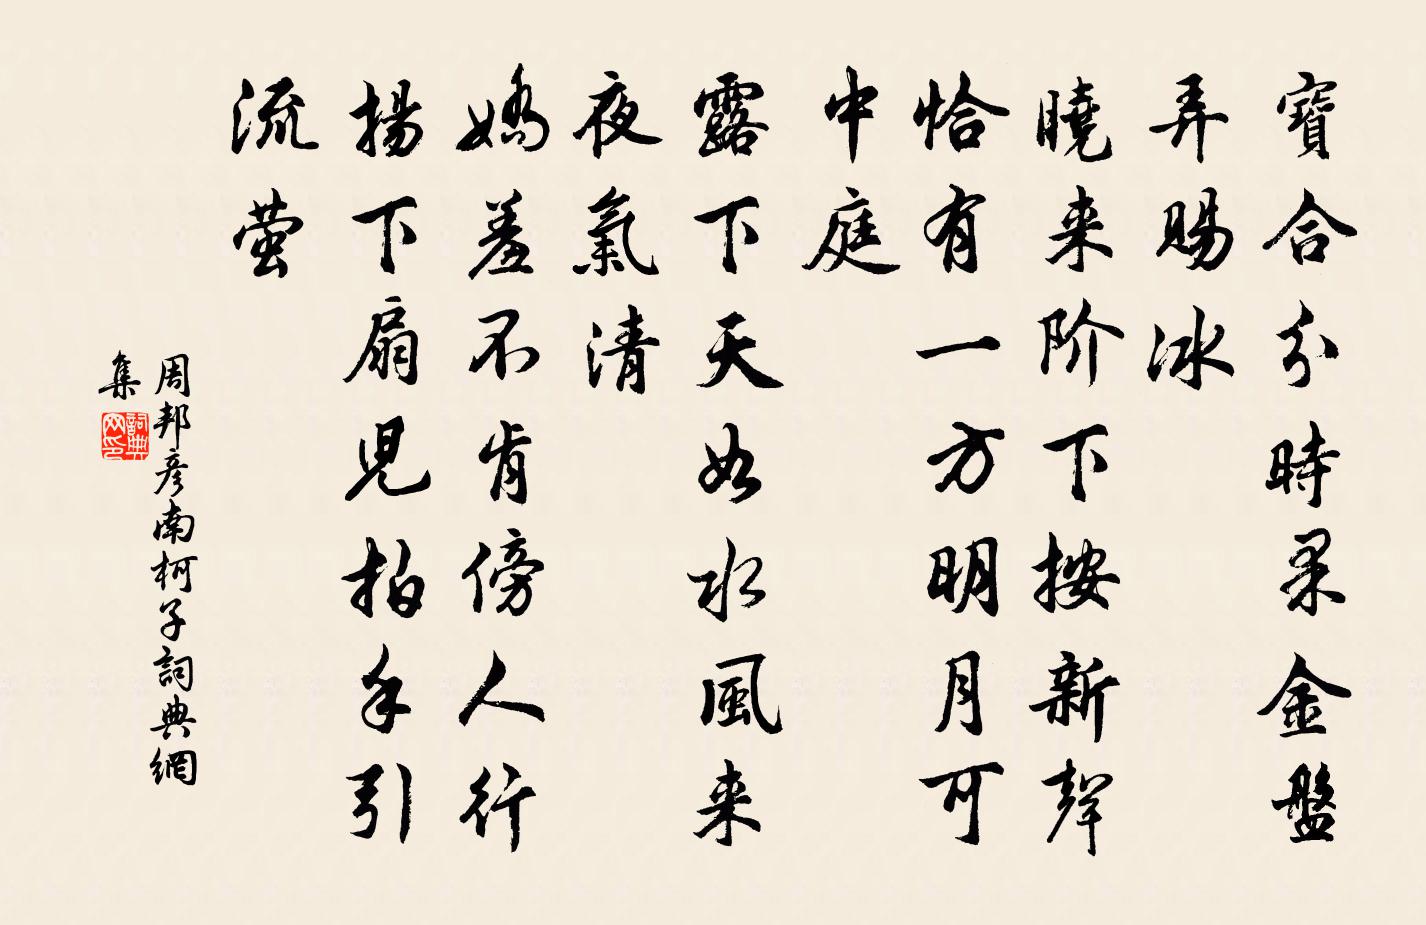 寶合分時果金盤
弄賜冰
曉来阶下按新聲
恰有一方明月可
中庭
露下天如水風来
夜氣清
嬌羞不肯傍人行
揚下扇児拍手引
流萤
周邦彦南柯子詞典網
集
詞典
网印